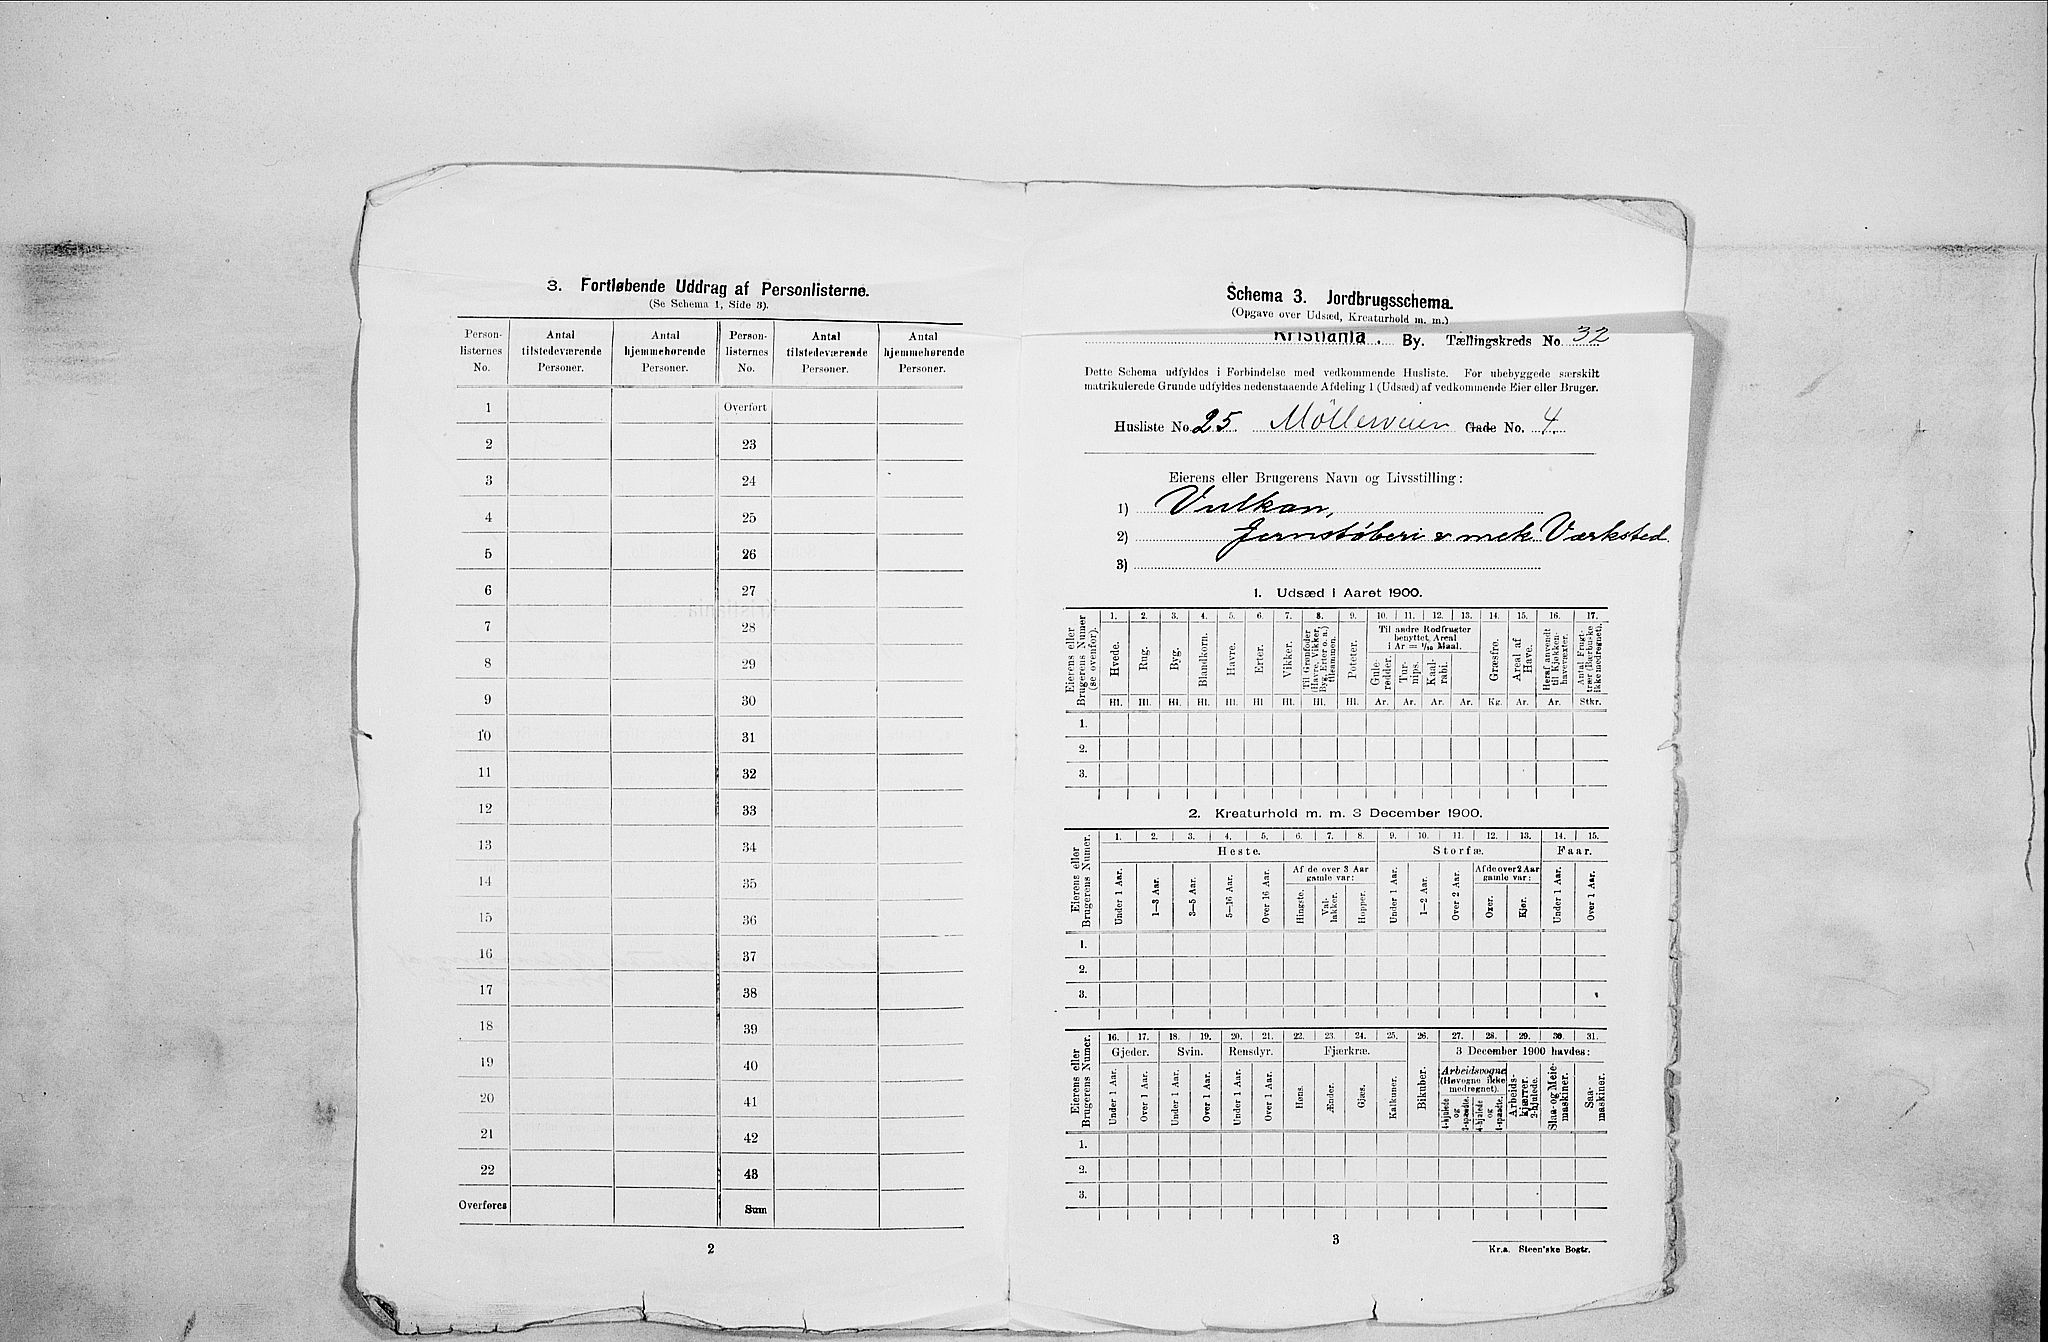 3. Fortløbende Uddrag af Personlisterne.
(Se Schema 1, Side 3).
Person-listernes No. | Antal tilstedeværende Personer. | Antal hjemmehørende Personer. | Person-listernes No. | Antal tilstedeværende Personer. | Antal hjemmehørende Personer.
1 Overført
2 23
3 24
4 25
5 26
6 27
7 28
8 29
9 30
10 31
11 32
12 33
13 34
14 35
15 36
16 37
17 38
18 39
19 40
20 41
21 42
22 43
Overføres Sum
2
Schema 3. Jordbrugsschema.
(Opgave over Udsæd, Kreaturhold m. m.)
Kristiania. By. Tællingskreds No 32
Dette Schema udfyldes i Forbindelse med vedkommende Husliste. For ubebyggede særskilt
matrikulerede Grunde udfyldes nedenstaaende Afdeling 1 (Udsæd) af vedkommende Eier eller Bruger.
Husliste No. 25. Möllerveien Gade No. 4.
Eierens eller Brugerens Navn og Livsstilling:
1) Vulkan,
2) Jernstøberi & mek Værksted
3)
1. Udsæd i Aaret 1900.
1. 2. 3. 4. 5. 6. 7. 8. 9. 10. 11. 12. 13. 14. 15. 16. 17.
Eierens eller Brugerens Numer (se ovenfor). | Hvede. | Rug. | Byg. | Blandkorn. | Havre. | Erter. | Vikker. | Til Grønfoder (Havre, Vikker, Byg, Erter o. a.) tilsammen. | Poteter. | Til andre Rodfrugter benyttet Areal i Ar = 1/10 Maal. | Gulerødder. | Turnips. | Kaalrabi. | Græsfrø. | Areal af Have. | Heraf anvendt til Kjøkkenhavevæxter. | Antal Frugttrær (Bærbuske ikke medregnet).
Hl. Hl. Hl. Hl. Hl. Hl Hl. Hl. Hl. Ar. Ar. Ar. Ar. Kg. Ar. Ar. Stkr.
1.
2.
3.
2. Kreaturhold m. m. 3 December 1900.
1. 2. 3. 4. 5. 6. 7. 8. 9. 10. 11. 12. 13. 14. 15.
Eierens eller Brugerens Numer. | Heste. | Storfæ. | Faar.
Under 1 Aar. | 1—3 Aar. | 3—5 Aar. | 5—16 Aar. | Over 16 Aar. | Af de over 3 Aar gamle var: | Hingste. | Vallakker. | Hopper. | Under 1 Aar. | 1—2 Aar. | Over 2 Aar. | Af de over 2 Aar gamle var: | Oxer. | Kjør. | Under 1 Aar. | Over 1 Aar.
1.
2.
3.
16. 17. 18. 19. 20. 21. 22. 23. 24. 25. 26. 27. 28. 29. 30. 31.
Eierens eller Brugerens Numer. | Gjeder. | Svin. | Rensdyr. | Fjærkræ. | Bikuber. | 3 December 1900 havdes:
Under 1 Aar. | Over 1 Aar. | Under 1 Aar. | Over 1 Aar. | Under 1 Aar. | Over 1 Aar. | Høns. | Ænder. | Gjæs. | Kalkuner. | Arbeidsvogne (Høvogne ikke medregnet). | 4-hjulede og 2-spændte. | 4-hjulede og 1-spændte. | Arbeids-kjærrer. 2-hjulede. | Slaa- og Meie-maskiner. | Saa-maskiner.
1.
2.
3.
3
Kr.a. Steen'ske Bogtr.